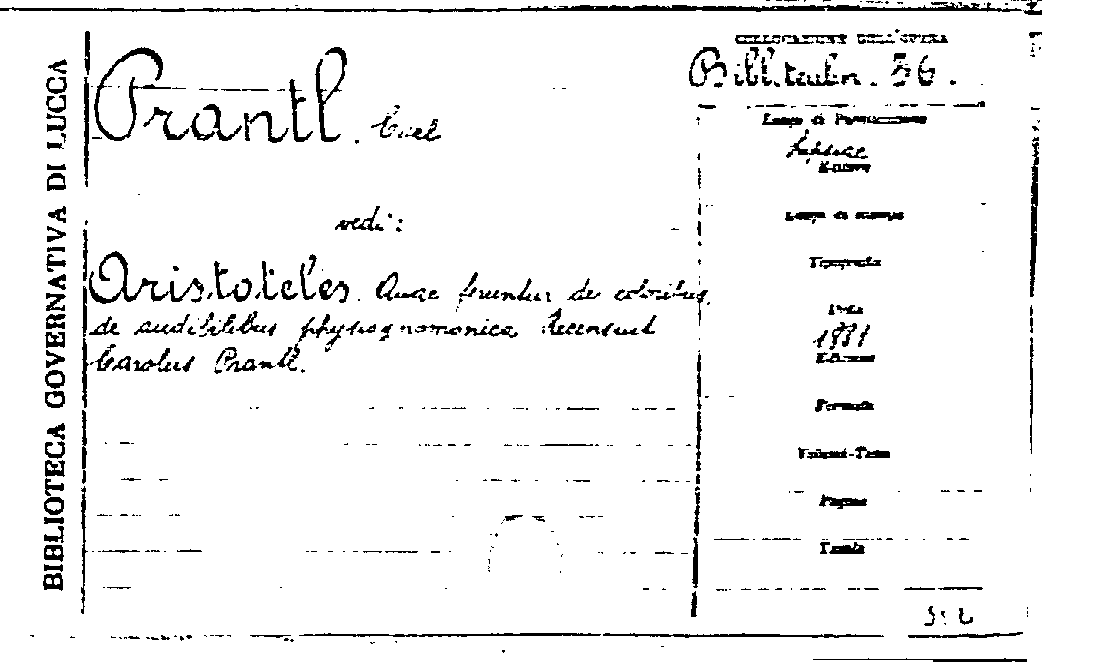 BIBLIOTECA GOVERNATIVA DI LUCCA
Prantl. Carl
vedi:
Aristoteles. Quae feruntur de coloribus,
de audibilibus physiognomonica recensuit
Carolus Prantl.
COLLOCAZIONE DELL'OPERA
Bibl. teubn. 36.
Luogo di Pubblicazione
Lipsiae
Editore
Luogo di stampa
Tipografia
1881
Edizione
Formato
Volumi-Tomo
Pagine
Tavole